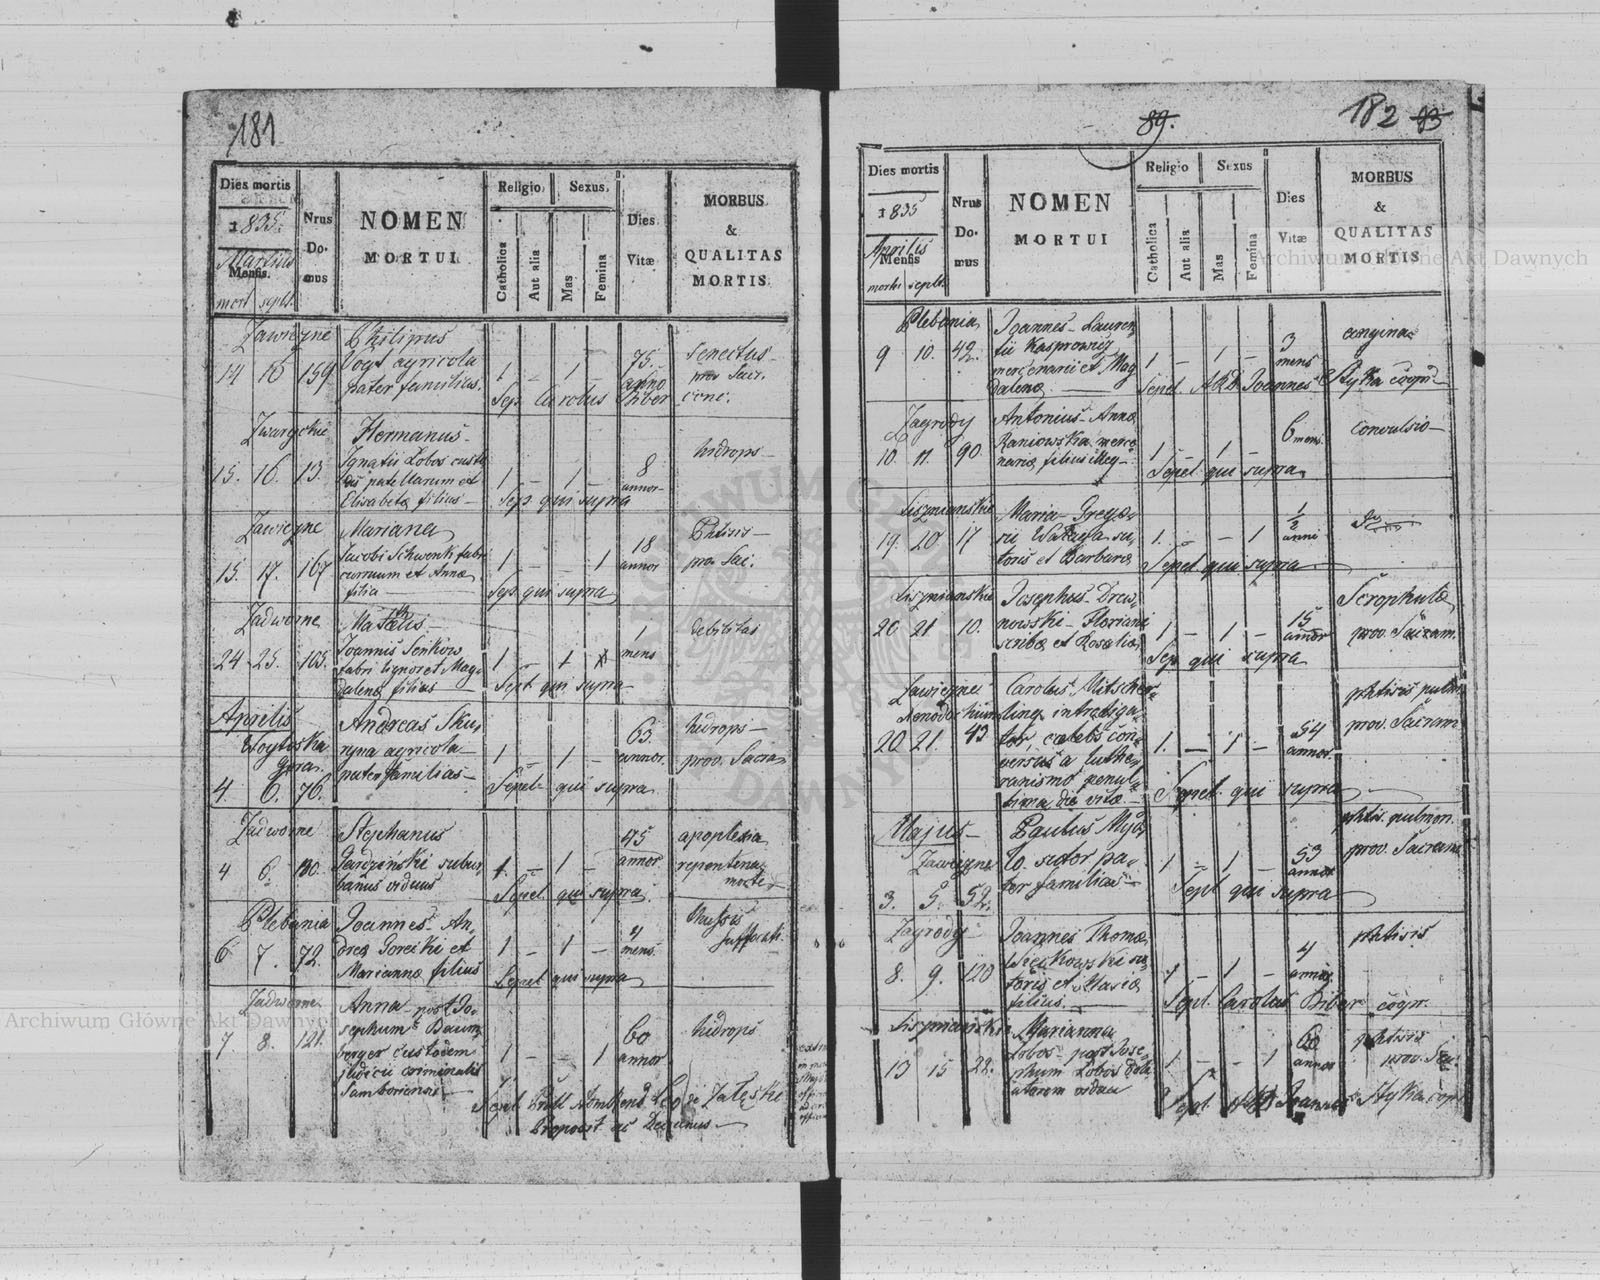 181
Dies mortis
1835.
Martius
Mensis.
mort. sepult.
Nrus
Do-
mus
NOMEN
MORTUI
Religio.
Catholica
Aut alia
Sexus.
Mas
Femina
Dies
Vitæ
MORBUS
&
QUALITAS
MORTIS.
Zawiezne
14 16 159
Philipus
Vogt agricola
pater familias.
1 - 1 -
75.
anno
Senectus
prov. Sacr.
Sep. Carolus Biber conc.
Zwaryckie
15. 16. 13.
Hermanus
Ignatii Lobos custo
dis patellarum et
Elisabetæ filius
1 - 1 -
8
annor
hidrops
Sep. qui supra
Zawiezne
15. 17. 167
Mariana
Jacobi Schwenk fabri
curruum et Annæ
filia
1 - - 1
18
annor
Phtisis
prov. Sac.
Sep. qui supra
Zadworne
24 25. 103.
Joannis Senkow
fabri lignor et Mag
dalenæ filius
1 - 1
1
mens
debilitas
Sept. qui supra
Aprilis
Woytoska
gora
4. 6. 76.
Andreas Sku
ryna agricola
pater familias
1 - 1 -
63.
annor.
hidrops
prov. Sacra
Sepel. qui supra
Zadworne
4 6. 130.
Stephanus
subur
banus viduus
1 - 1 -
45
annor
apoplexia
repentena
morte
Sepel. qui supra.
Plebania
6 7. 72.
Joannes An
dreæ Goreski et
Mariannæ filius
1 - 1 -
4
mens.
Tussis
suffocati
Sepel qui supra
Zadworne
7 8. 121.
Anna post Jo
sephum Baum
berger custodem
judicii criminalis
Samboriensis
1 - - 1
60
annor
hidrops
Praepost ac Decanus
89.
182 93
Dies mortis
1835
Aprilis
Mensis
mortis sepult.
Nrus
Do-
mus
NOMEN
MORTUI
Religio
Catholica
Aut alia
Sexus
Mas
Femina
Dies
Vitæ
MORBUS
&
QUALITAS
MORTIS
Plebania
9 10. 42.
Joannes Lauren
tii Kasprowicz
mercenarii et Mag
dalenæ
1 - 1 -
3
mens
angina
Sepel. Joannes Styka coop.
Zagrody
10. 11. 90.
Antonius Annæ
Raniowska merce
nariæ filius illeg
1 - 1
6 mens.
convulsio
Sepel qui supra
Liszniańskie
19. 20 17
Maria Grego
rii su
toris et Barbaræ
1. - - 1
1/2
anni
Sepel. qui supra
Liszniańskie
20 21 10.
Josephus Drew
nowski Floriani
scribæ et Rosaliæ
1 - 1 -
15
annor
Scrophulæ
prov. Sacram.
Sep qui supra
Zawiezne
Xenodochium
20 21. 43
Carolus Mitscher
ling introliga
tor, cælebs con
versus a luthe
ranismo penul
tima die vitæ
1. - 1 -
54
annor.
phtisis pulm.
prov. Sacram
Sepel. qui supra
Majus
Zawiezne
3. 5. 52.
Paulus
sutor pa
ter familias
1 - 1 -
53
annor
phtis. pulmon.
prov. Sacram
Sepel qui supra
Zagrody
8. 9. 120
Joannes Thomæ
Wieckowski su
toris et Mariæ
filius.
1 - 1 -
4
annor
phtisis
Sepl. Carolus Biber coop.
Liszniańskie
13 15 22.
Marianna
Lobos post Jose
phum Lobos
vidua
1 - - 1
60
annor
phtisis
prov. Sac.
Sept. Joannes Styka coop.
Archiwum Główne Akt Dawnych
Archiwum Główne Akt Dawnych